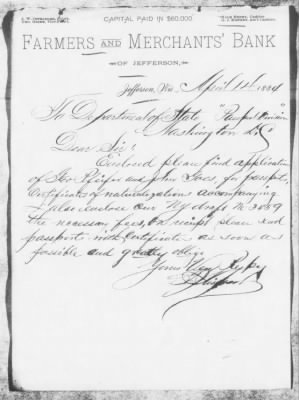 CAPITAL PAID IN $60,000.
FARMERS AND MERCHANTS' BANK
OF JEFFERSON,
Jefferson, Wis. April 14 1884
To Department of State "Passport Division"
Washington D.C.
Dear Sir:
Enclosed please find application
of Geo Pfeifer and John for passports
Certificates of naturalization accompanying
I also enclose our Ny draft No 3089
the necessary fees, on receipt please send
passports with Certificates as soon as
possible and greatly oblige
Yours Very Respy